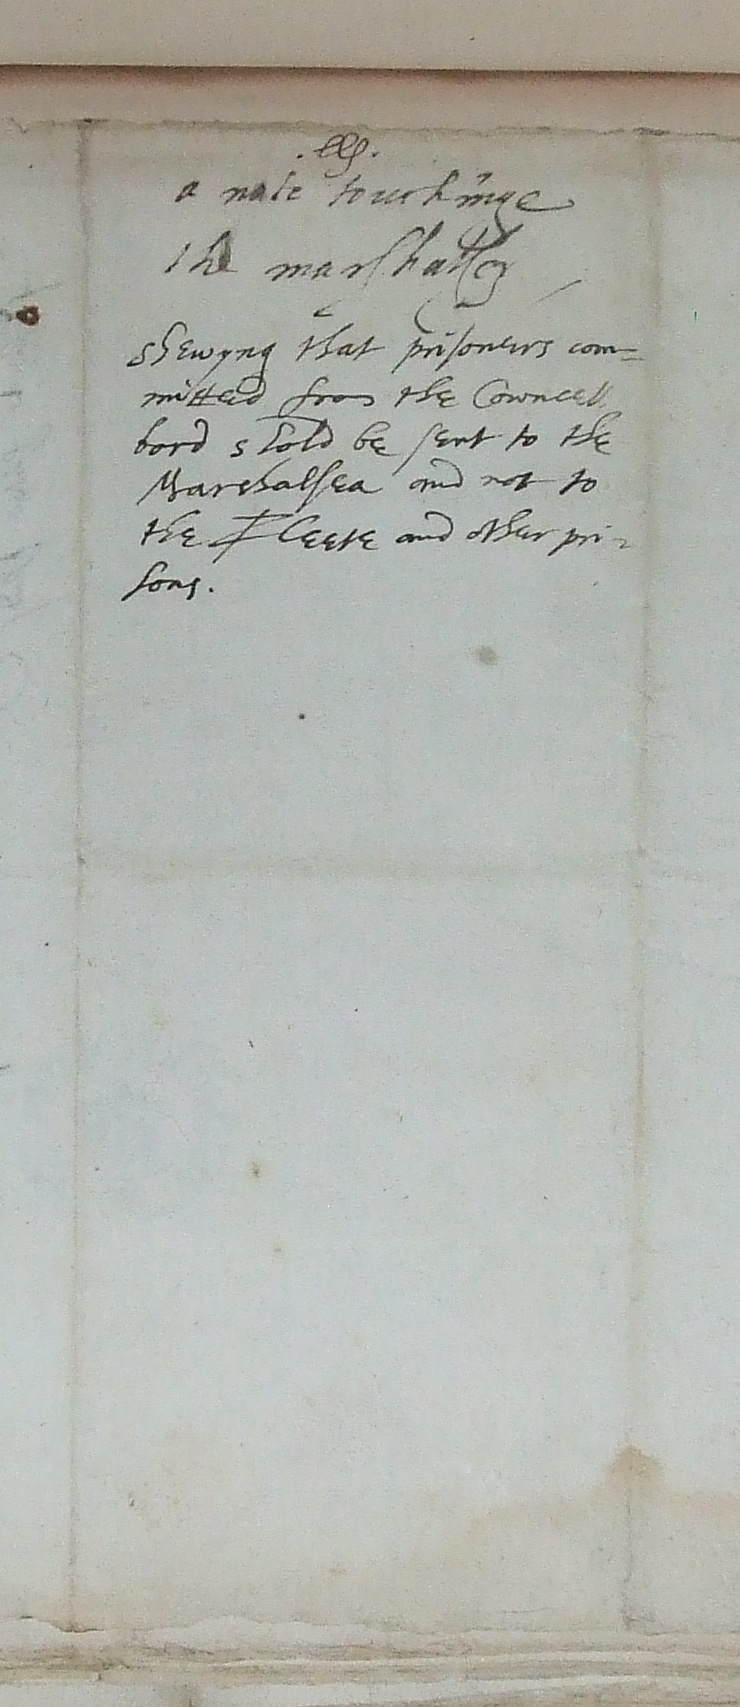 a note touchinge
the marshalsey
shewyng that prisoners com=
mitted from the Councell
bord shold be sent to the
Marshalsea and not to
the Fleete and other pri=
sons.